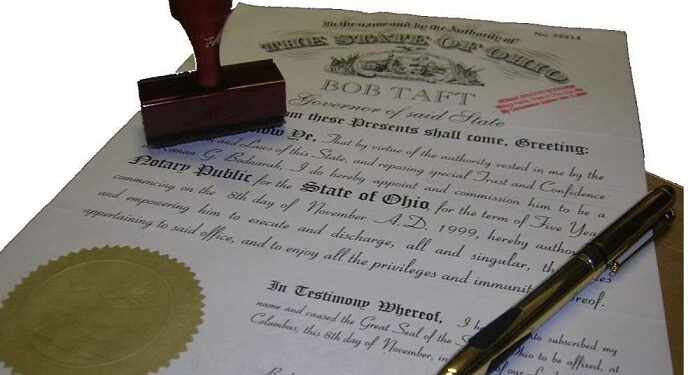 In the name and by the Authority of
No. 32214
THE STATE OF OHIO
BOB TAFT
Governor of said State
om these Presents shall come, Greeting:
Know Ye, That by virtue of the authority vested in me by the
and Laws of this State, and reposing special Trust and Confidence
in Roman G. Bodnaruk, I do hereby appoint and commission him to be a
Notary Public for the State of Ohio, for the term of Five Yea
commencing on the 8th day of November A.D. 1999, hereby author
and empowering him to execute and discharge, all and singular, th ties
appertaining to said office, and to enjoy all the privileges and immunit ereof.
In Testimony Whereof, I h to subscribed my
name and caused the Great Seal of the S Ohio to be affixed, at
Columbus, this 8th day of November, in